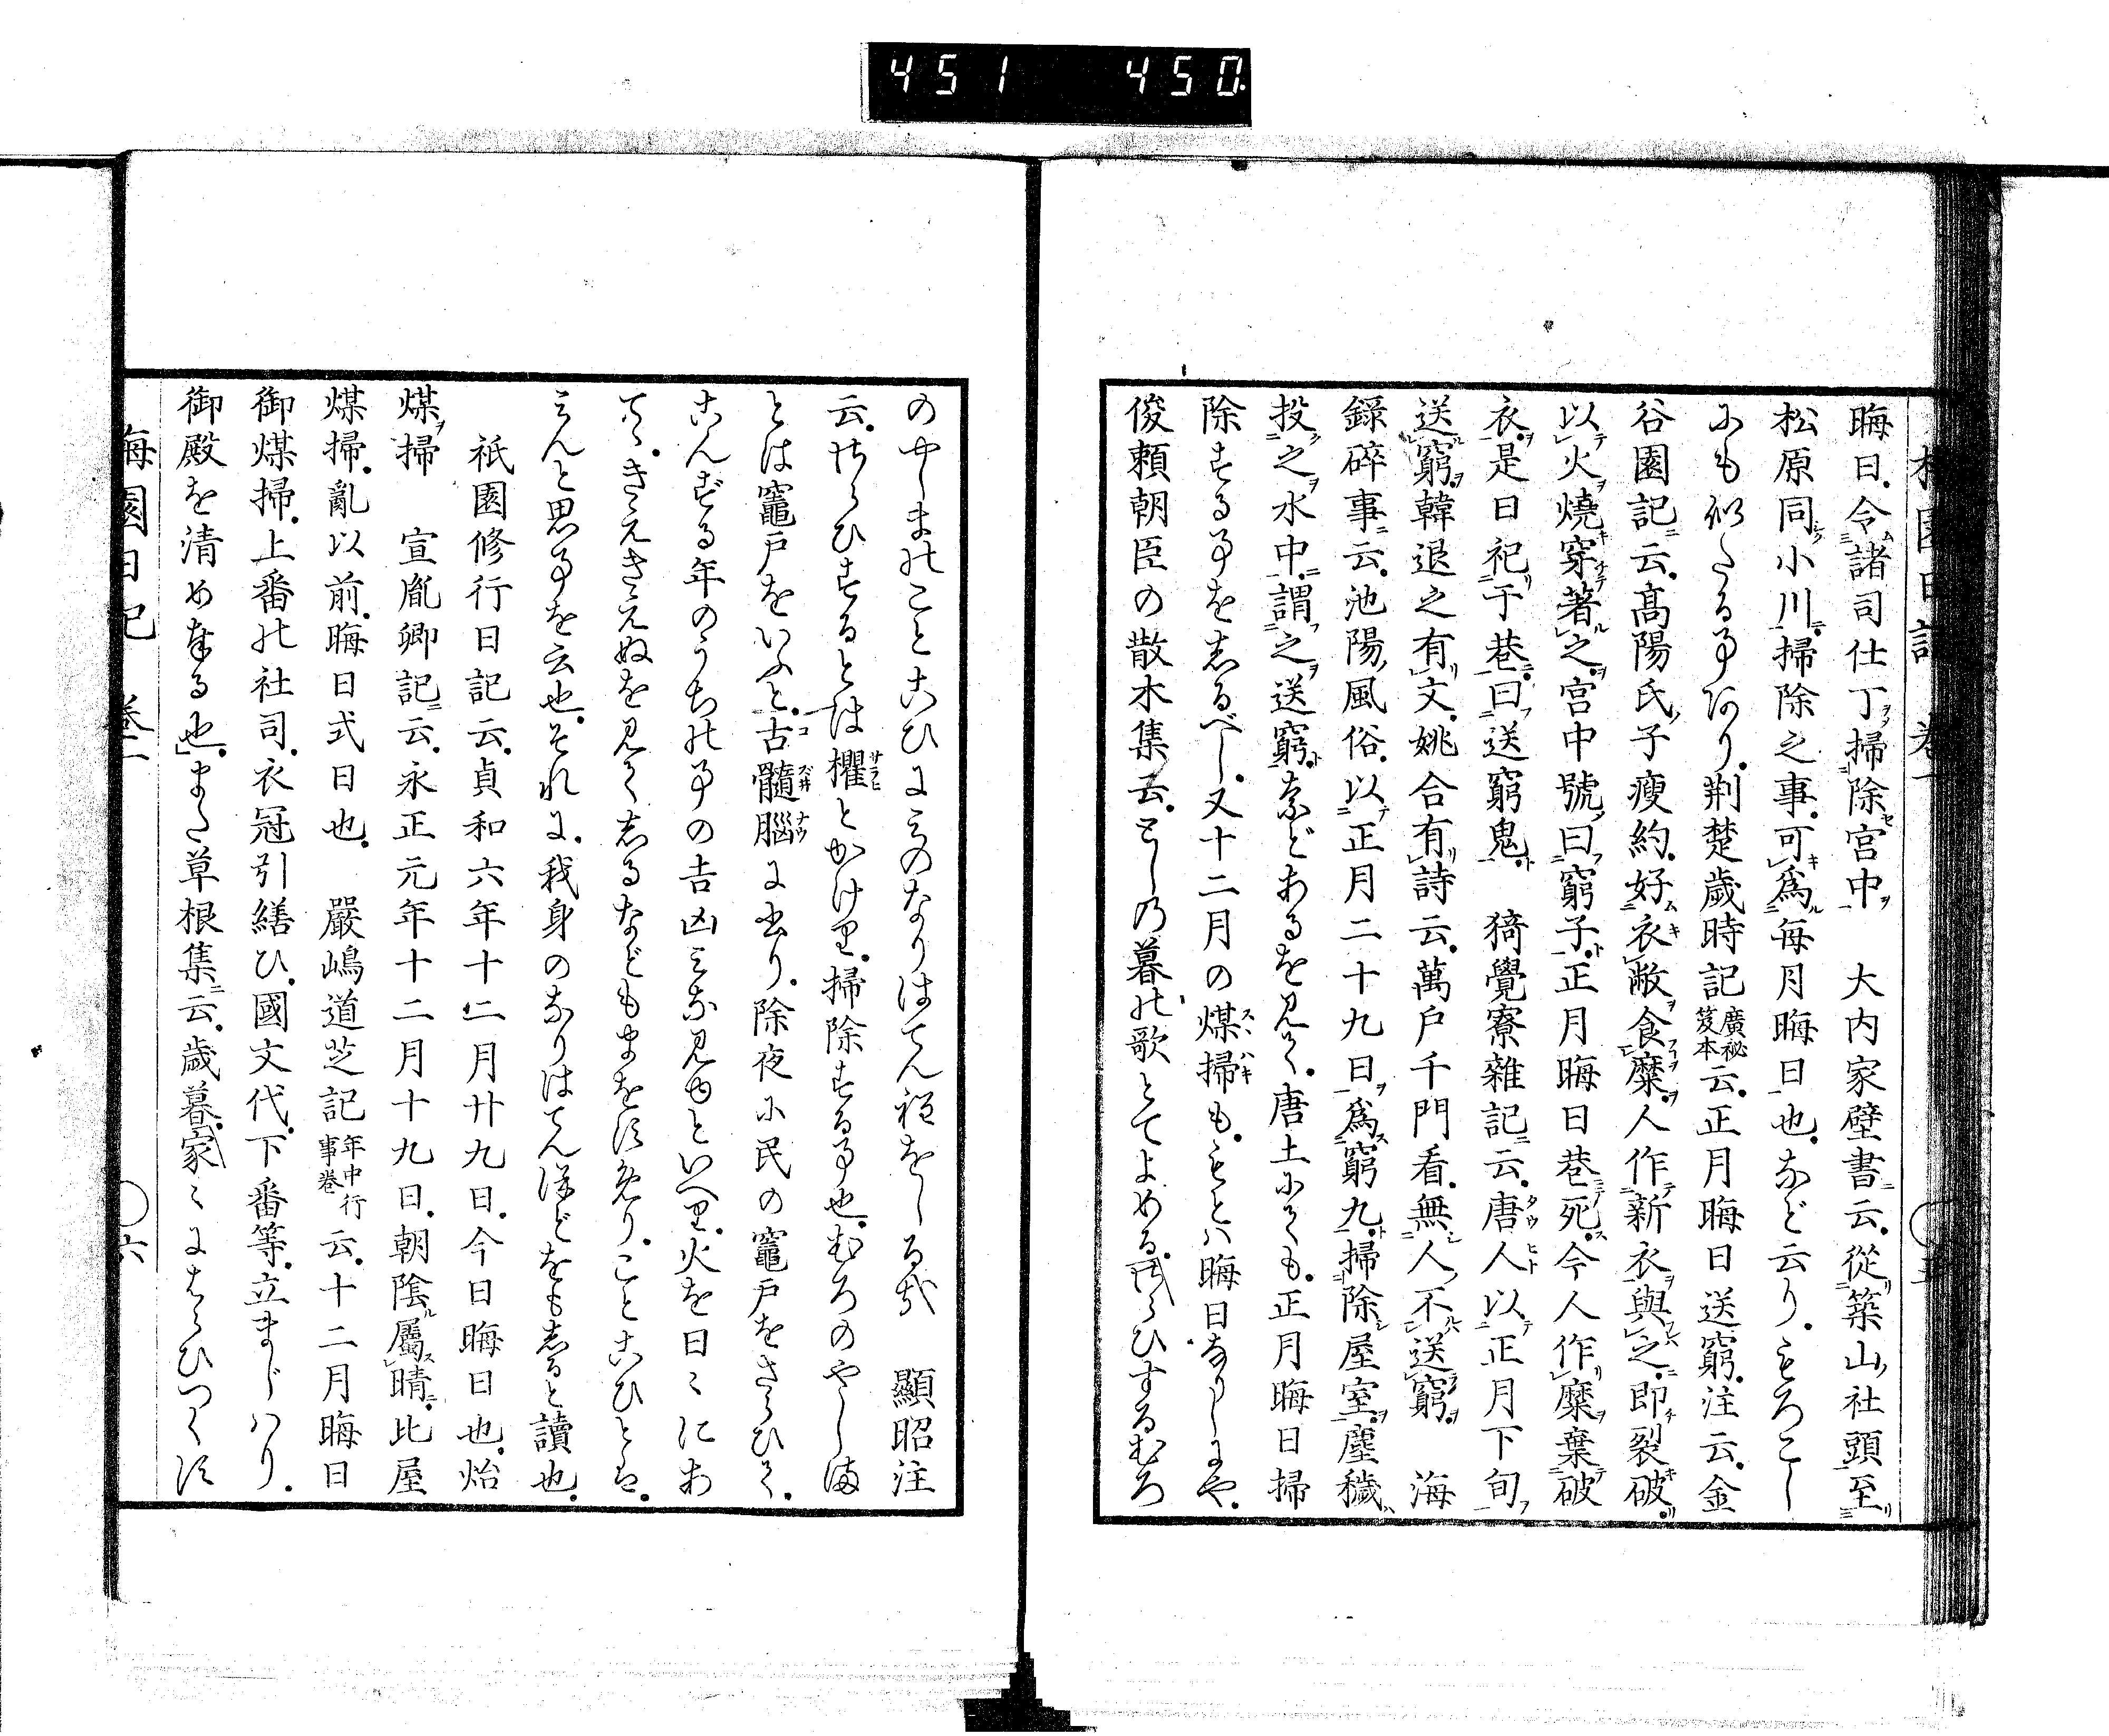 451 450
晦日。令諸司仕丁掃除宮中 大内家壁書云。從築山社頭至
松原同小川掃除之事。可爲毎月晦日也。など云り。もろこし
にも似たる事あり。荆楚歳時記廣秘笈本云。正月晦日送窮。注云。金
谷園記云。髙陽氏子瘦約。好衣敝食糜。人作新衣與之。即裂破。
以火燒穿著之。宮中號曰窮子。正月晦日巷死。今人作糜棄破
衣。是日祀于巷。曰送窮鬼。 猗覺寮雜記云。唐人以正月下旬
送窮。韓退之有文。姚合有詩云。萬戸千門看。無人不送窮。 海
錄碎事云。池陽風俗。以正月二十九日爲窮九。掃除屋室。塵穢
投之水中。謂之送窮。などあるを見て。唐土にても。正月晦日掃
除する事をしるべし。又十二月の煤掃も。もとハ晦日なりしにや。
俊頼朝臣の散木集云。としの暮の歌とてよめる。さらひするむろ
のやしまのことこひにみのなりはてん程をしる哉 顯昭注
云。さらひするとは欋とかけり。掃除する事也。むろのやしま
とは竈戸をいふと。古髓腦に出り。除夜に民の竈戸をさらひて。
こんずる年のうちの事の吉凶みな見ゆといへり。火を日〻にあ
てゝ。きえきえぬを見てしるなどもまをすめり。ことこひとは。
みんと思事を云也。それに。我身のなりはてん様どをもしると讀也。
祇園修行日記云。貞和六年十二月廿九日。今日晦日也。始
煤掃 宣胤卿記云。永正元年十二月十九日。朝陰屬晴。比屋
煤掃。亂以前。晦日式日也。 嚴嶋道芝記年中行事卷云。十二月晦日
御煤掃。上番の社司。衣冠引繕ひ。國文代。下番等。立まじハり。
御殿を清め奉る也。また草根集云。歳暮。家〻にはらひつくす
梅園日記 卷一 〇六